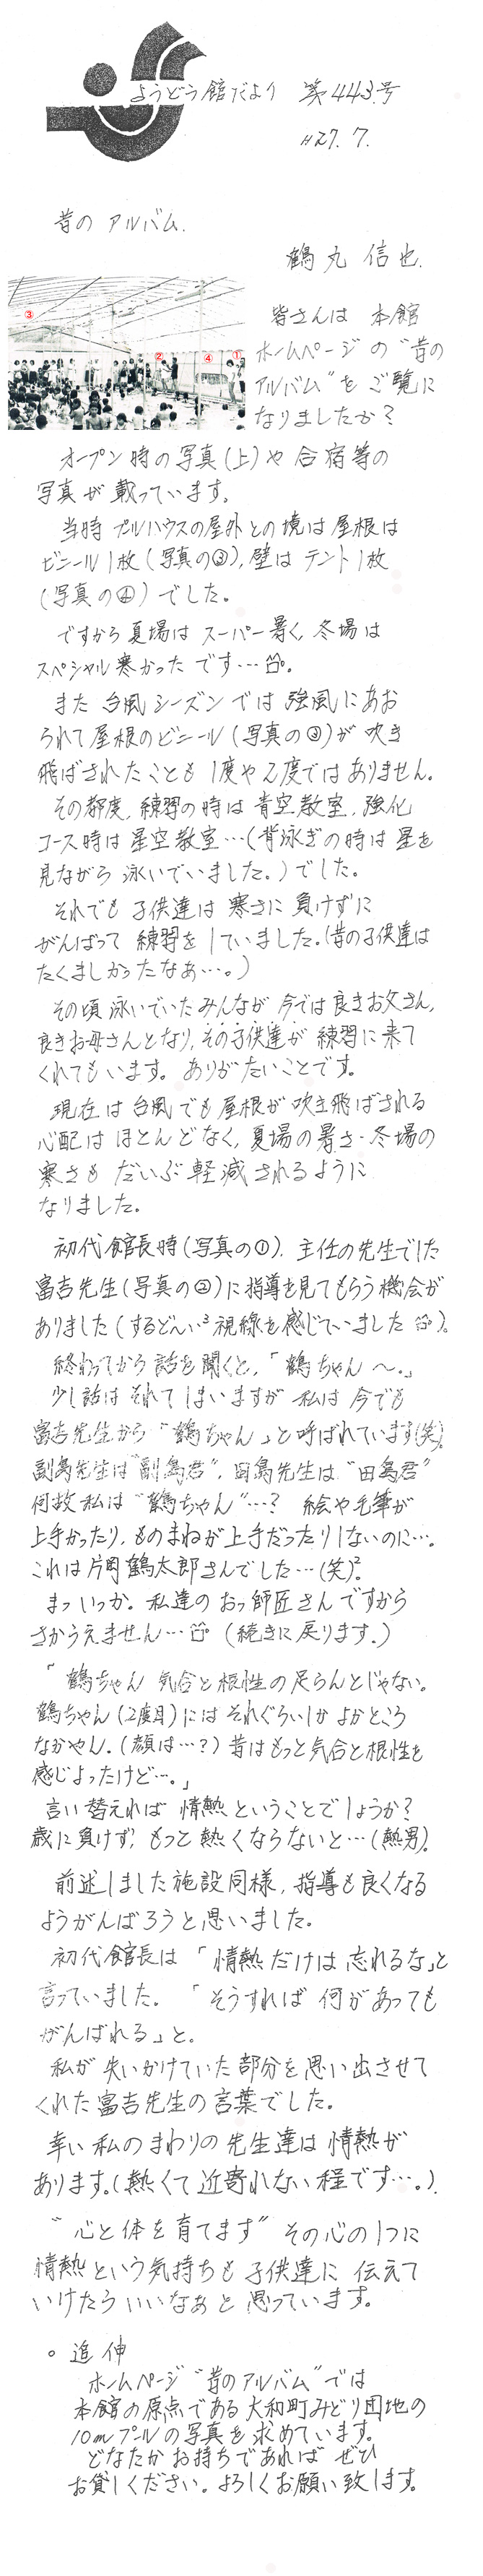 ようどう館だより 第443号
H27.7.
昔の アルバム.
鶴丸 信也.
皆さんは 本館
ホームページの "昔の
アルバム" を ご覧に
なりましたか?
③
②
④
①
オープン時の写真(上)や 合宿等の
写真が載っています。
当時 プールハウスの屋外との境は屋根は
ビニール1枚(写真の③), 壁は テント1枚
(写真の④)でした。
ですから夏場は スーパー暑く, 冬場は
スペシャル寒かった です…。
また 台風シーズンでは 強風にあお
られて屋根のビニール(写真の③)が 吹き
飛ばされたことも 1度や2度ではありません。
その都度, 練習の時は 青空教室, 強化
コース時は星空教室…(背泳ぎの時は 星を
見ながら 泳いでいました。)でした。
それでも 子供達は 寒さに 負けずに
がんばって 練習をしていました。(昔の子供達は
たくましかったなあ…。)
その頃 泳いでいた みんなが 今では良きお父さん,
良きお母さんとなり, その子供達が 練習に来て
くれてもいます。ありがたいことです。
現在は台風でも屋根が吹き飛ばされる
心配は ほとんどなく, 夏場の暑さ・冬場の
寒さも だいぶ軽減されるように
なりました。
初代館長時(写真の①), 主任の先生でした
富吉先生(写真の②)に指導を見てもらう機会が
ありました(するどい 視線を感じていました)。
終わってから話を聞くと, 「鶴ちゃん 〜。」
少し話は それてしまいますが 私は 今でも
富吉先生から "鶴ちゃん」と呼ばれています(笑)。
副島先生は "副島君", 田島先生は "田島君"
何故 私は "鶴ちゃん"…? 絵や毛筆が
上手かったり, ものまねが上手だったりしないのに…。
これは片岡鶴太郎さんでした…(笑)²。
まっいっか。私達の おっ師匠さん ですから
さからえません… (続きに戻ります。)
「鶴ちゃん 気合と根性の足らんとじゃない。
鶴ちゃん(2度目)には それぐらいしか よかところ
なかやん。(顔は…?) 昔はもっと気合と根性を
感じよったけど…。」
言い替えれば 情熱ということでしょうか?
歳に負けず, もっと 熱くならないと…(熱男)。
前述しました施設同様, 指導も良くなる
ようがんばろうと思いました。
初代館長は 「情熱だけは 忘れるな」と
言っていました。 「そうすれば 何があっても
がんばれる」と。
私が 失いかけていた部分を思い出させて
くれた富吉先生の言葉でした。
幸い 私のまわりの先生達は 情熱が
あります。(熱くて近寄れない程です…。)
"心と体を育てます" その心の1つに
情熱という気持ちも 子供達に 伝えて
いけたら いいなぁと 思っています。
○ 追伸
ホームページ "昔のアルバム" では
本館の原点である大和町みどり団地の
10mプールの写真を求めています。
どなたか お持ちであれば ぜひ
お貸しください。よろしくお願い致します。